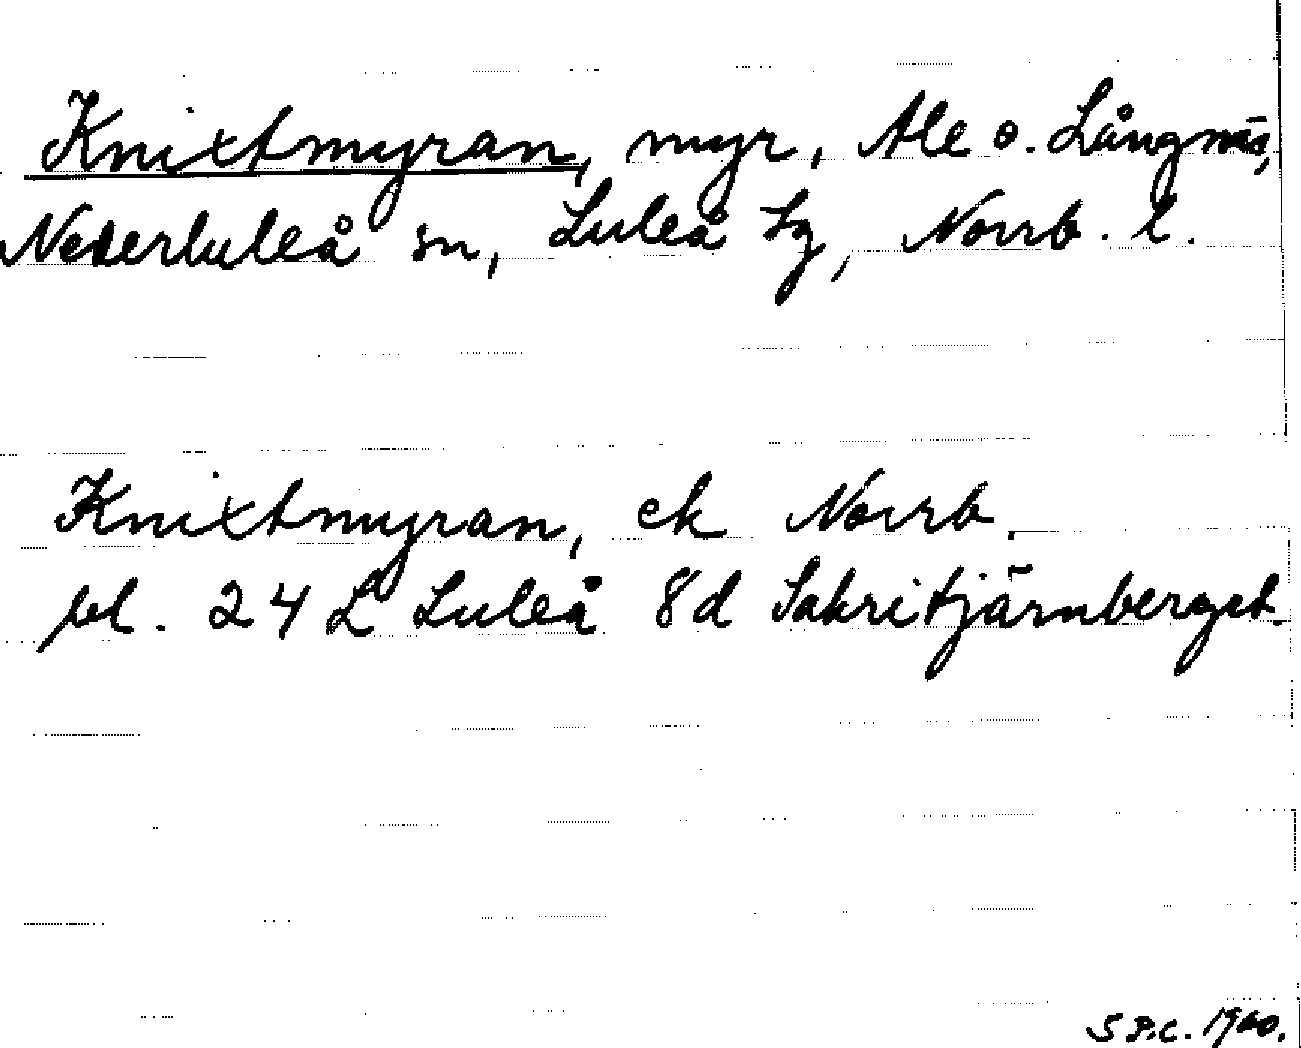 Knixtmyran, myr, Ale o. Långnäs,
Nederluleå sn, Luleå tg, Norrb. l.
Knixtmyran, ek Norrb.
bl. 24 L Luleå 8d Sakritjärnberget
1960.